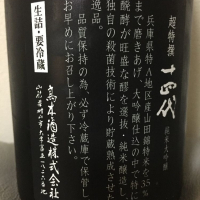 超特撰
十四代
純米大吟醸
兵庫県特A地区産山田錦特米を35%
まで磨きあげ、大吟醸仕込の中で特に
醗酵が旺盛な醪を選抜・純米醸造し
独自の殺菌技術により貯蔵熟成させた
逸品。
品質保持の為、必ず冷蔵庫で保管し
お早めにお召し上がり下さい。
生詰・要冷蔵
高木酒造株式会社
山形県村山市大字富並一八二六